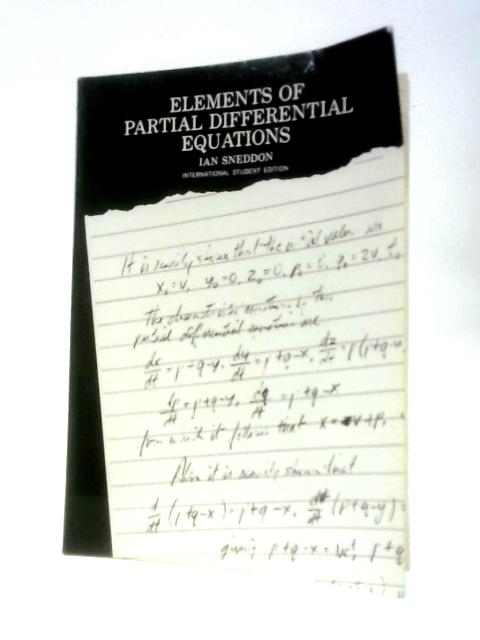 ELEMENTS OF
PARTIAL DIFFERENTIAL
EQUATIONS
IAN SNEDDON
INTERNATIONAL STUDENT EDITION
It is easily shown that the initial values are
x₀=v, y₀=0, z₀=0, p₀=0, q₀=2v, t₀
The characteristic equations of this
partial differential equation are
dx/dt = p+q-y, dy/dt = p+q-x, dz/dt = p(p+q-y
dp/dt = p+q-y, dq/dt = p+q-x
from which it follows that x = v+p,
Also it is easily shown that
d/dt (p+q-x) = p+q-x, d/dt (p+q-y) =
giving p+q-x = veᵗ, p+q